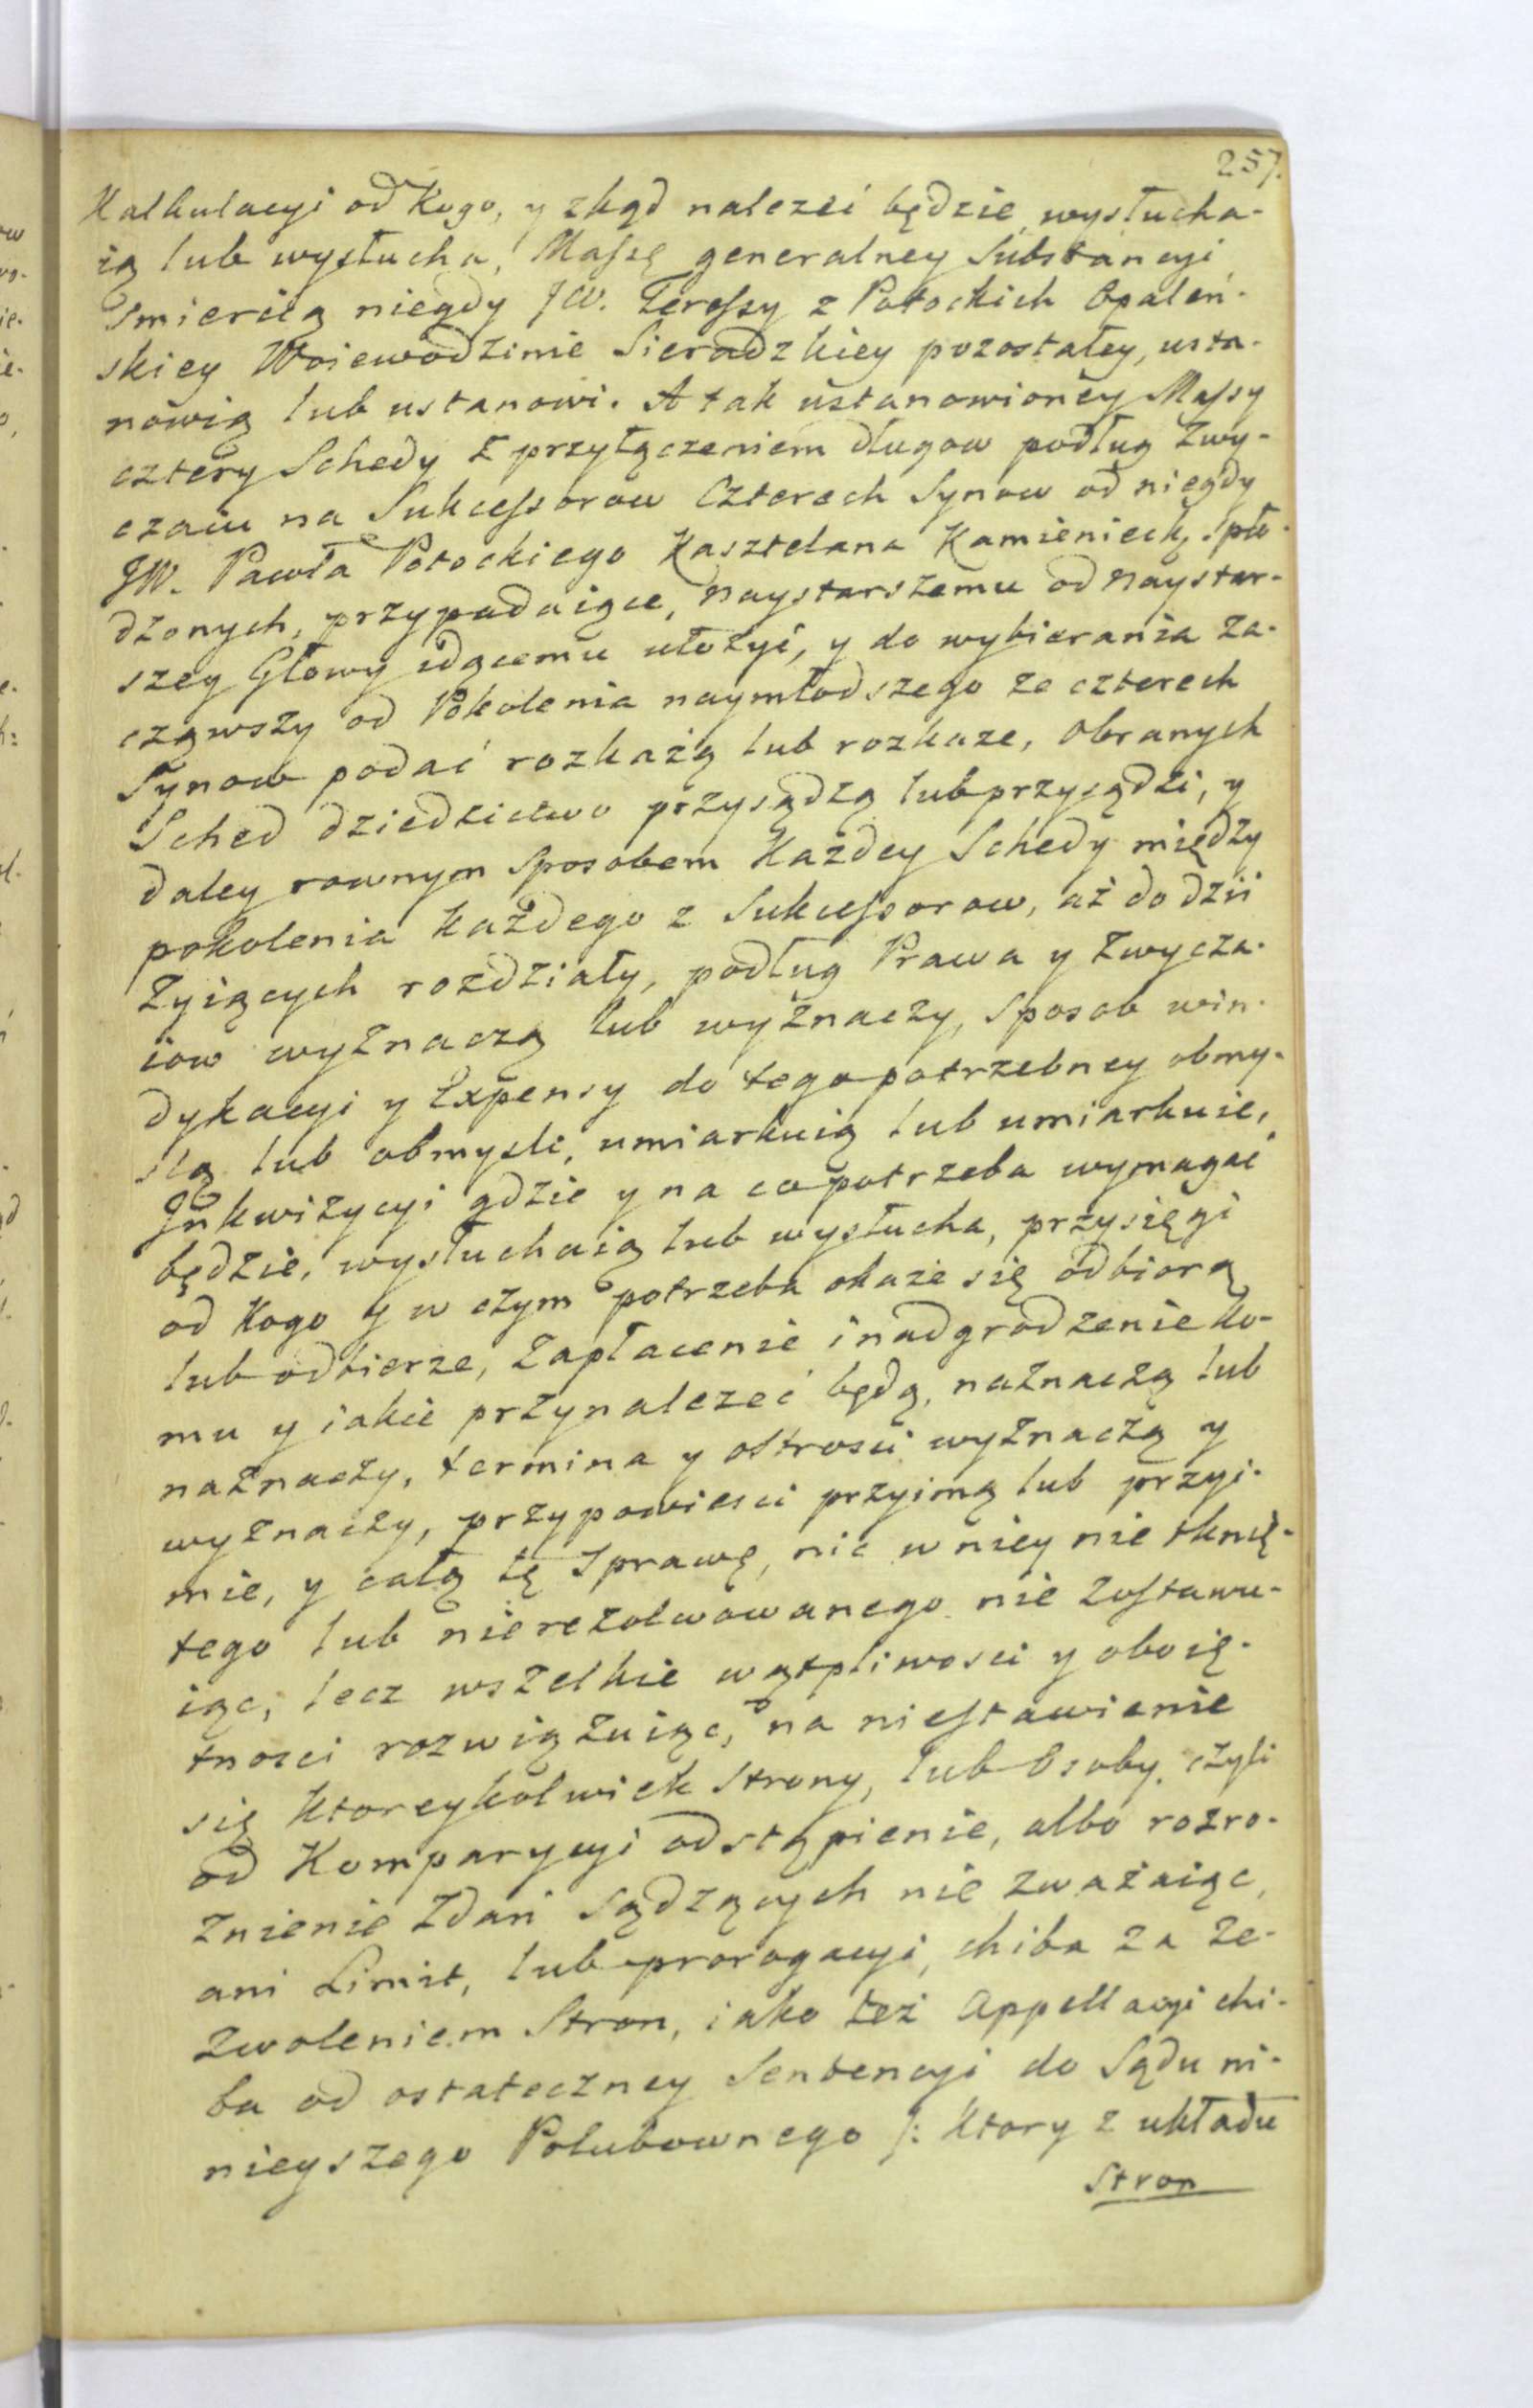 257.
Kalkulacyi od Kogo, y zkąd nalezeć będzie, wysłucha-
ią lub wysłucha, Massę generalney Substancyi
Smiercią niegdy JW. Teressy z Potockich Opaleń-
skiey Woiewodzinie Sieradzkiey pozostałey, usta-
nowią lub ustanowi. A tak ustanowioney Massy
cztery Schedy z przyłączeniem długow podług Zwy-
czaiu na Sukcessorow Czterech Synow od niegdy
JW. Pawła Potockiego Kasztelana Kamienieck, spło-
dzonych, przypadaiące, naystarszemu od naystar-
szey Głowy idącemu ułożyć, y do wybierania za-
cząwszy od Pokolenia naymłodszego ze czterech
Synow podać rozkażą lub rozkaze, obranych
Sched dziedzictwo przysądzą lub przysądzi, y
daley rownym sposobem Każdey Schedy między
pokolenia każdego z Sukcessorow, aż do dziś
Zyiących rozdziały, podług Prawa y Zwycza-
iow wyznaczą lub wyznaczy, sposob win-
dykacyi y Expensy do tego potrzebney obmy-
slą lub obmysli, umiarkuią lub umiarkuie,
Jnkwizycyi gdzie y na co potrzeba wymagać
będzie, wysłuchaią lub wysłucha, przysięgi
od Kogo y w czym potrzeba okaże się odbiorą
lub odbierze, Zapłacenie i nadgrodzenie Ko-
mu y iakie przynalezeć będą, naznaczą lub
naznaczy, termina y ostrosci wyznaczą y
wyznaczy, przypowiesci przyimą lub przyi-
mie, y całą tę Sprawę, nic w niey nie tknię-
tego lub nierezolwowanego nie Zostawu-
iąc, lecz wszelkie wątpliwosci y oboię-
tnosci rozwiązuiąc, na niestawienie
się ktoreykolwiek Strony, lub Osoby, czyli
od Komparycyi odstąpienie, albo rozro-
znienie Zdań Sądzących nie zważaiąc,
ani Limit, lub prorogacyi, chiba za Ze-
zwoleniem Stron, iako też Appellacyi chi-
ba od ostateczney Sentencyi do Sądu ni-
nieyszego Polubownego /: ktory z układu
Stron